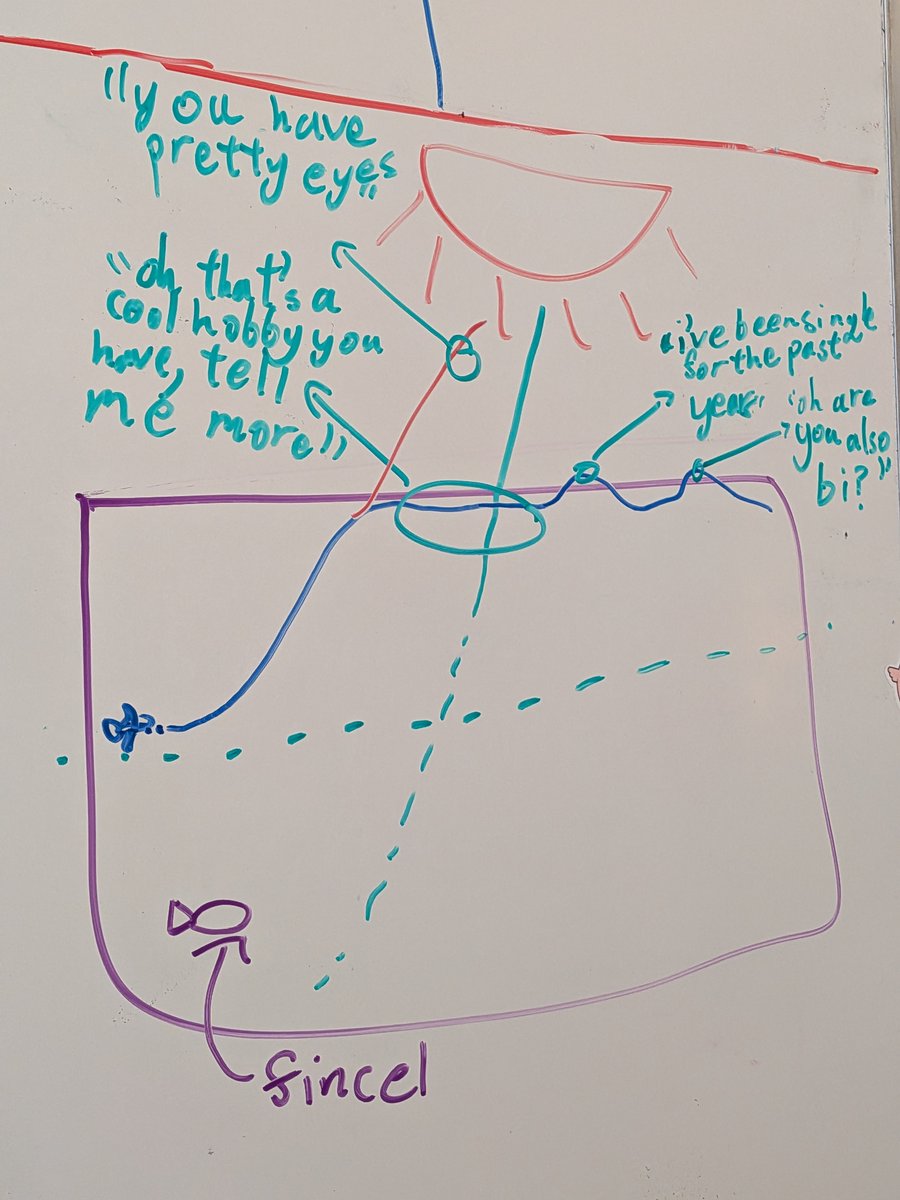 "you have
pretty eyes"
"oh that's a
cool hobby you
have, tell
me more"
"i've been single
for the past
year"
"oh are
you also
bi?"
fincel